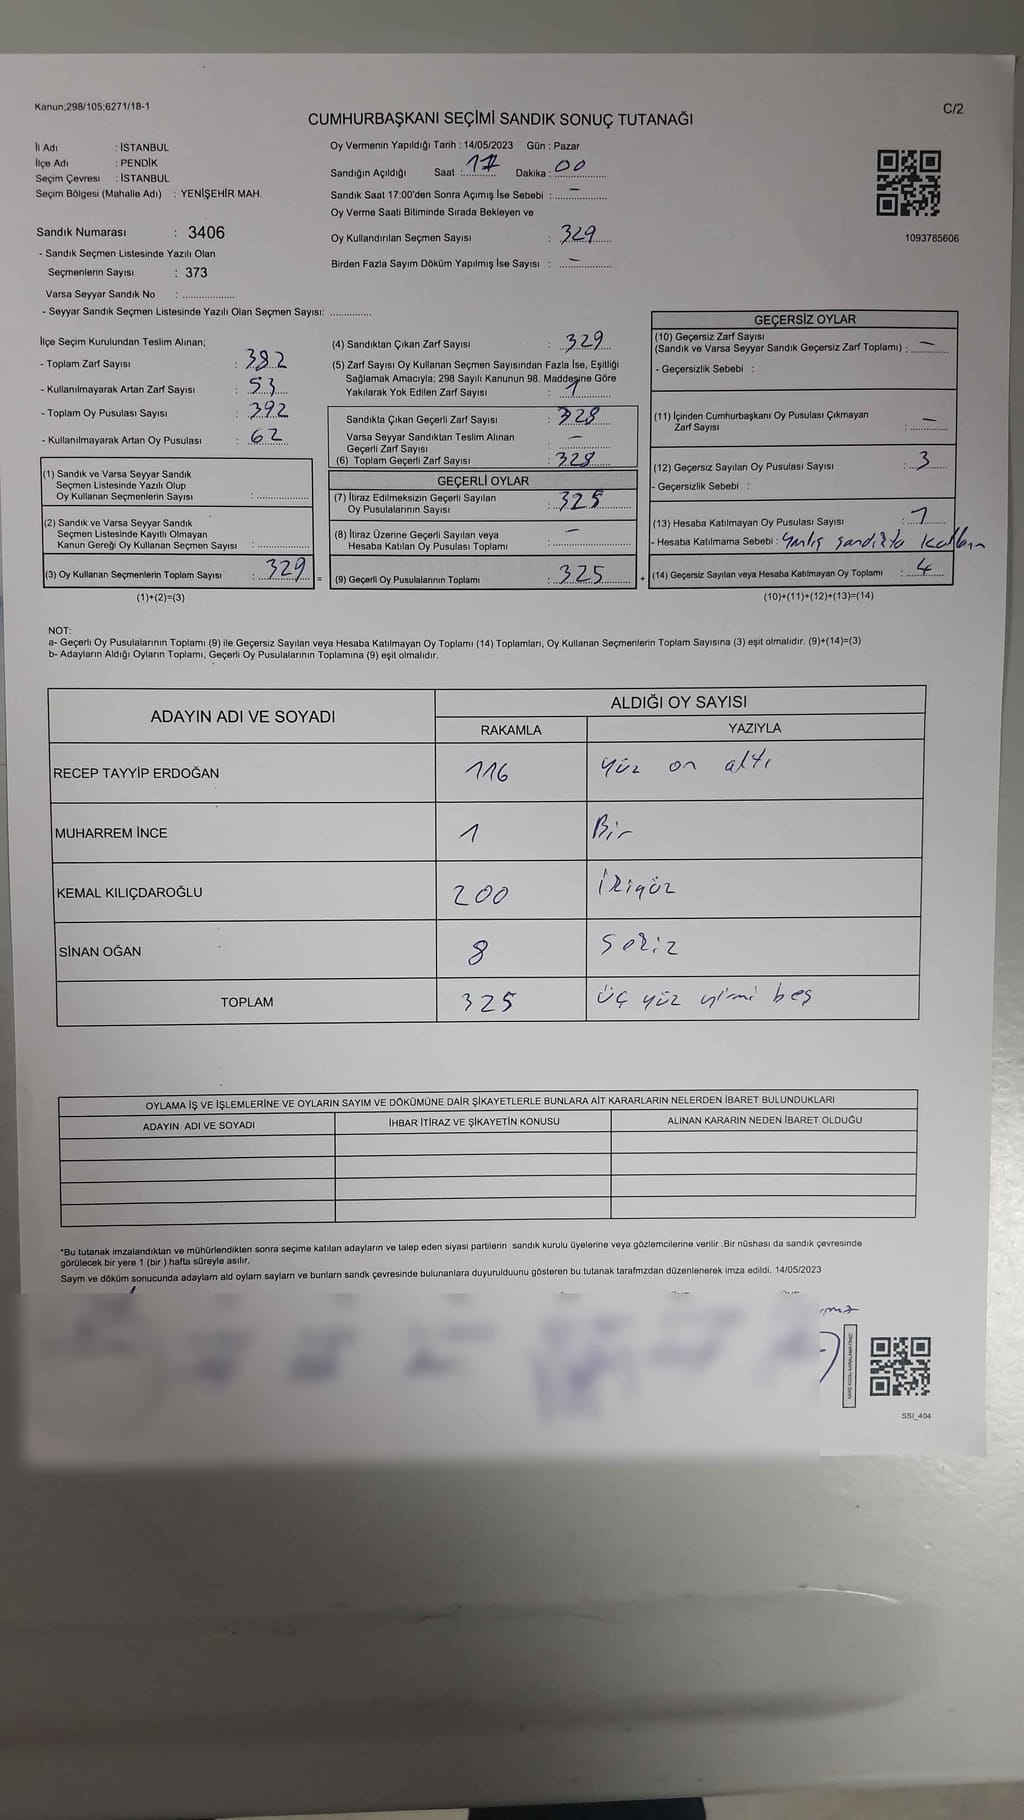 Kanun;298/105;6271/18-1
C/2
CUMHURBAŞKANI SEÇİMİ SANDIK SONUÇ TUTANAĞI
İl Adı : İSTANBUL
İlçe Adı : PENDİK
Seçim Çevresi : İSTANBUL
Seçim Bölgesi (Mahalle Adı) : YENİŞEHİR MAH.
Sandık Numarası : 3406
- Sandık Seçmen Listesinde Yazılı Olan
Seçmenlerin Sayısı : 373
Varsa Seyyar Sandık No : ..................
- Seyyar Sandık Seçmen Listesinde Yazılı Olan Seçmen Sayısı: ..............
Oy Vermenin Yapıldığı Tarih : 14/05/2023 Gün : Pazar
Sandığın Açıldığı Saat : 17 Dakika : 00
Sandık Saat 17:00'den Sonra Açımış İse Sebebi : —
Oy Verme Saati Bitiminde Sırada Bekleyen ve
Oy Kullandırılan Seçmen Sayısı : 329
Birden Fazla Sayım Döküm Yapılmış İse Sayısı : —
1093785606
İlçe Seçim Kurulundan Teslim Alınan;
- Toplam Zarf Sayısı : 382
- Kullanılmayarak Artan Zarf Sayısı : 53
- Toplam Oy Pusulası Sayısı : 392
- Kullanılmayarak Artan Oy Pusulası : 62
(1) Sandık ve Varsa Seyyar Sandık
Seçmen Listesinde Yazılı Olup
Oy Kullanan Seçmenlerin Sayısı : ..............
(2) Sandık ve Varsa Seyyar Sandık
Seçmen Listesinde Kayıtlı Olmayan
Kanun Gereği Oy Kullanan Seçmen Sayısı : ..............
(3) Oy Kullanan Seçmenlerin Toplam Sayısı : 329 =
(1)+(2)=(3)
(4) Sandıktan Çıkan Zarf Sayısı : 329
(5) Zarf Sayısı Oy Kullanan Seçmen Sayısından Fazla İse, Eşitliği
Sağlamak Amacıyla; 298 Sayılı Kanunun 98. Maddesine Göre
Yakılarak Yok Edilen Zarf Sayısı : 1
Sandıkta Çıkan Geçerli Zarf Sayısı : 328
Varsa Seyyar Sandıktan Teslim Alınan
Geçerli Zarf Sayısı : —
(6) Toplam Geçerli Zarf Sayısı : 328
GEÇERLİ OYLAR
(7) İtiraz Edilmeksizin Geçerli Sayılan
Oy Pusulalarının Sayısı : 325
(8) İtiraz Üzerine Geçerli Sayılan veya
Hesaba Katılan Oy Pusulası Toplamı : —
(9) Geçerli Oy Pusulalarının Toplamı : 325 +
GEÇERSİZ OYLAR
(10) Geçersiz Zarf Sayısı
(Sandık ve Varsa Seyyar Sandık Geçersiz Zarf Toplamı) : —
- Geçersizlik Sebebi :
(11) İçinden Cumhurbaşkanı Oy Pusulası Çıkmayan
Zarf Sayısı : —
(12) Geçersiz Sayılan Oy Pusulası Sayısı : 3
- Geçersizlik Sebebi :
(13) Hesaba Katılmayan Oy Pusulası Sayısı : 1
- Hesaba Katılmama Sebebi : Yanlış sandıkta
(14) Geçersiz Sayılan veya Hesaba Katılmayan Oy Toplamı : 4
(10)+(11)+(12)+(13)=(14)
NOT:
a- Geçerli Oy Pusulalarının Toplamı (9) ile Geçersiz Sayılan veya Hesaba Katılmayan Oy Toplamı (14) Toplamları, Oy Kullanan Seçmenlerin Toplam Sayısına (3) eşit olmalıdır. (9)+(14)=(3)
b- Adayların Aldığı Oyların Toplamı, Geçerli Oy Pusulalarının Toplamına (9) eşit olmalıdır.
ADAYIN ADI VE SOYADI
ALDIĞI OY SAYISI
RAKAMLA YAZIYLA
RECEP TAYYİP ERDOĞAN 116 yüz on altı
MUHARREM İNCE 1 Bir
KEMAL KILIÇDAROĞLU 200 İkiyüz
SİNAN OĞAN 8 Sekiz
TOPLAM 325 üç yüz yirmi beş
OYLAMA İŞ VE İŞLEMLERİNE VE OYLARIN SAYIM VE DÖKÜMÜNE DAİR ŞİKAYETLERLE BUNLARA AİT KARARLARIN NELERDEN İBARET BULUNDUKLARI
ADAYIN ADI VE SOYADI İHBAR İTİRAZ VE ŞİKAYETİN KONUSU ALINAN KARARIN NEDEN İBARET OLDUĞU
*Bu tutanak imzalandıktan ve mühürlendikten sonra seçime katılan adayların ve talep eden siyasi partilerin sandık kurulu üyelerine veya gözlemcilerine verilir .Bir nüshası da sandık çevresinde
görülecek bir yere 1 (bir ) hafta süreyle asılır.
Saym ve döküm sonucunda adaylarn ald oylarn saylarn ve bunlarn sandk çevresinde bulunanlara duyurulduunu gösteren bu tutanak tarafmzdan düzenlenerek imza edildi. 14/05/2023
SSI_404